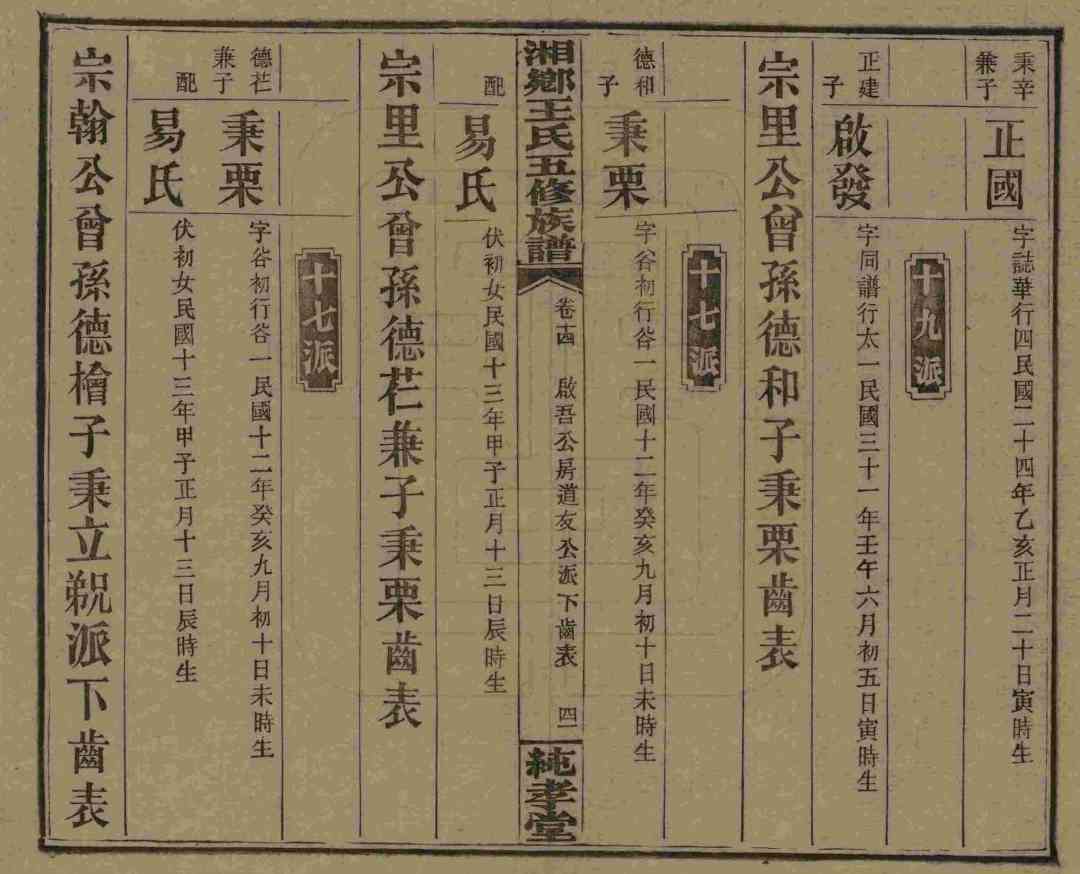 秉辛兼子
正國
字誌華行四民國二十四年乙亥正月二十日寅時生
十九派
正建子
啟發
字同譜行太一民國三十一年壬午六月初五日寅時生
宗里公曾孫德和子秉栗齒表
十七派
德和子
秉栗
字谷初行谷一民國十二年癸亥九月初十日未時生
湘鄉王氏五修族譜
卷十四
啟吾公房道友公派下齒表
四一
純孝堂
配
易氏
伏初女民國十三年甲子正月十三日辰時生
宗里公曾孫德芒兼子秉栗齒表
十七派
德芒兼子
秉栗
字谷初行谷一民國十二年癸亥九月初十日未時生
配
易氏
伏初女民國十三年甲子正月十三日辰時生
宗翰公曾孫德檜子秉立兼祧派下齒表